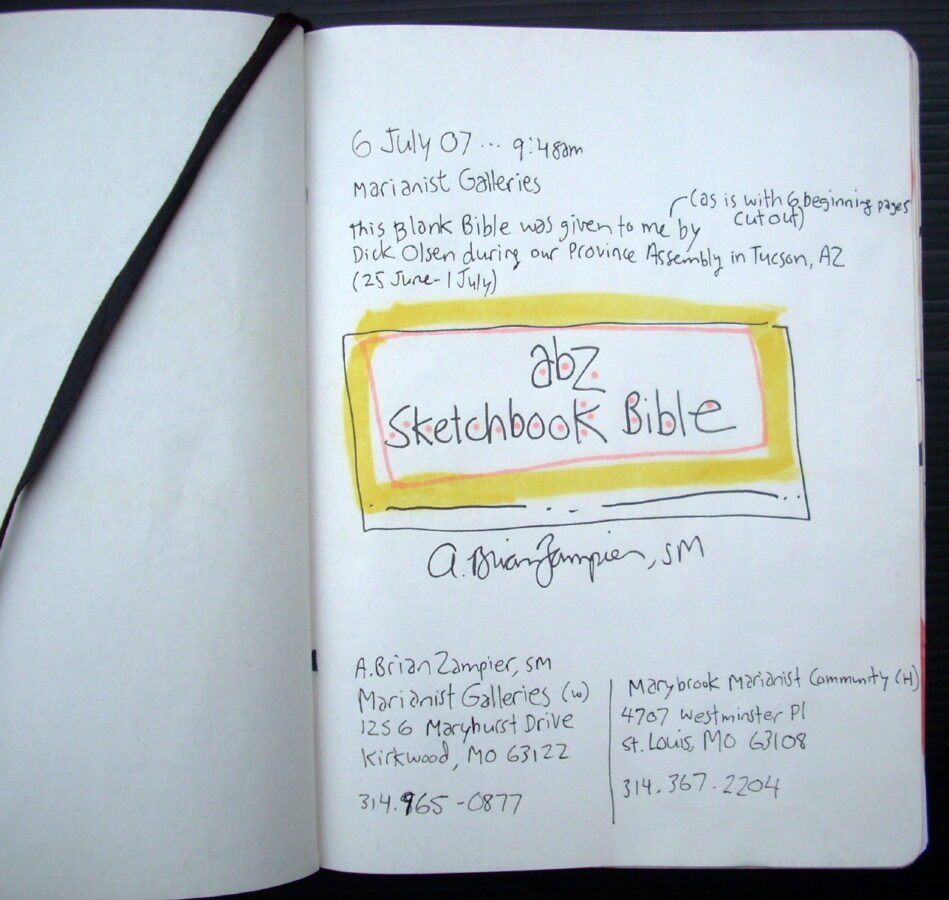 6 July 07... 9:48am
Marianist Galleries
(as is with 6 beginning pages
cut out)
this Blank Bible was given to me by
Dick Olsen during our Province Assembly in Tucson, AZ
(25 June-1 July)
abz
Sketchbook Bible
A. Brian Zampier, SM
A. Brian Zampier, SM
Marianist Galleries (w)
1256 Maryhurst Drive
Kirkwood, MO 63122
314.965-0877
Marybrook Marianist Community (H)
4707 Westminster Pl
St. Louis, MO 63108
314.367.2204